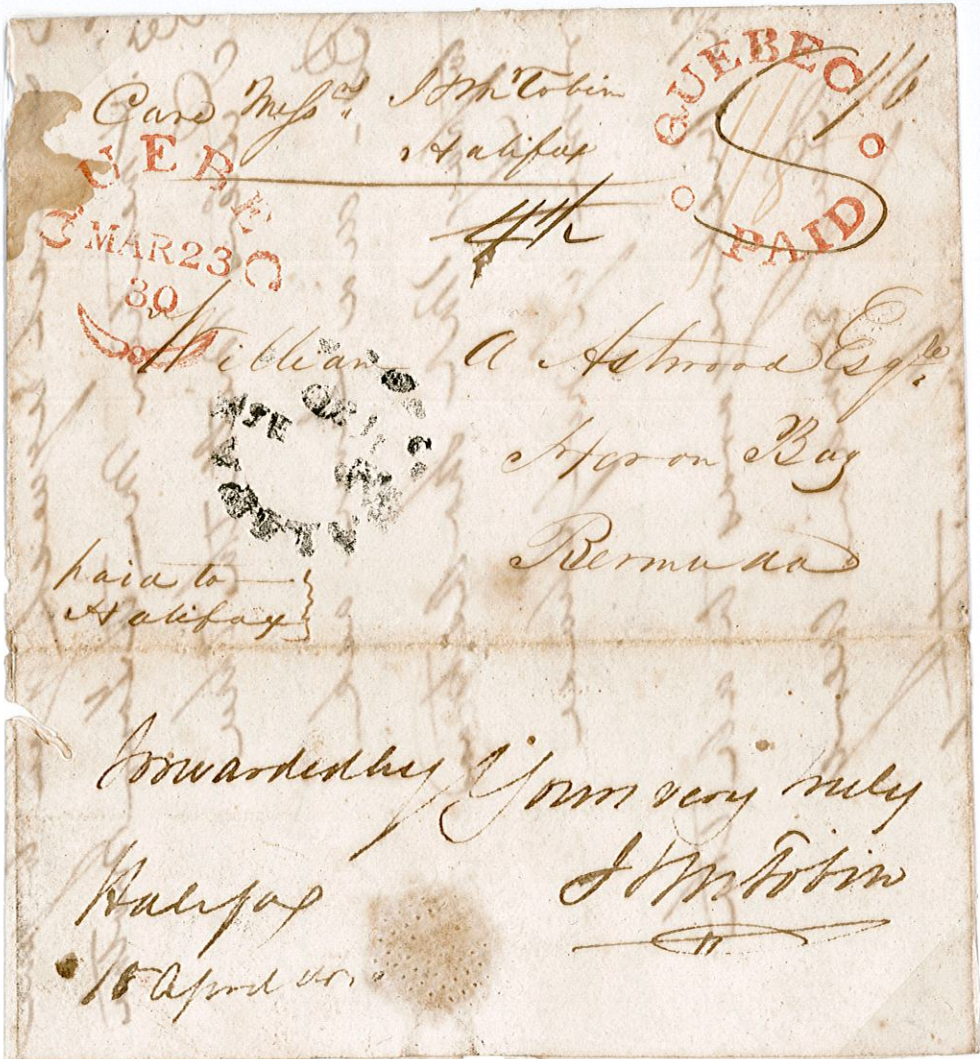 Care Messrs J & Wm Tobin
Halifax
QUEBEC
PAID
1/6
QUEBEC
MAR 23
30
William A Astwood Esqre
Heron Bay
Bermuda
paid to
Halifax
forwarded by Yours very truly
J & Wm Tobin
Halifax
15 April